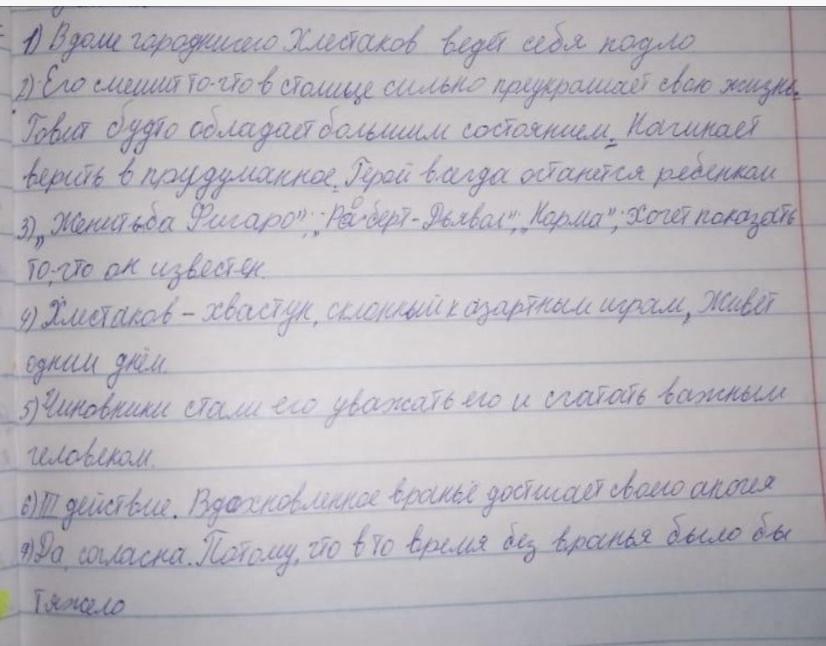 1) В доме городничего Хлестаков ведёт себя подло
2) Его смешит то-что в столице сильно преукрашает свою жизнь.
Говит будто обладает большим состоянием. Начинает
верить в прудуманное. Герой всегда останется ребенком
3) „Женитьба Фигаро"; „Роберт-Дьявол"; „Норма"; Хочет показать
то, что он известен.
4) Хлестаков – хвастун, склонный к азартным играм, Живёт
одним днём.
5) Чиновники стали его уважать его и считать важным
человеком.
6) III действие. Вдохновленное враньё достигает своего апогея
7) Да, согласна. Потому, что в то время без вранья было бы
тяжело